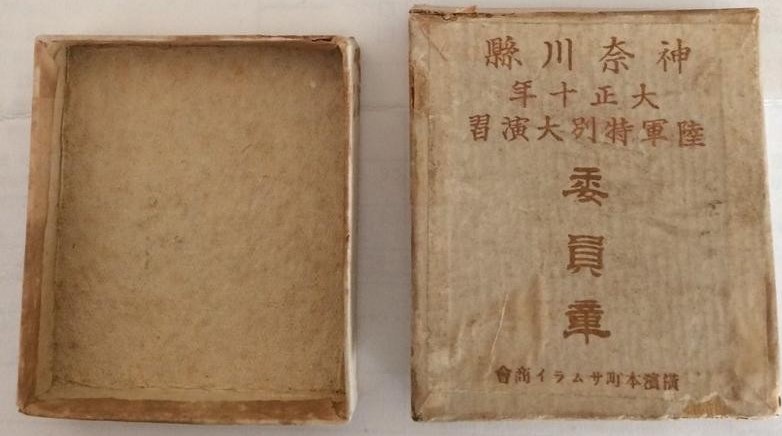 神奈川縣
大正十年
陸軍特別大演習
委員章
横濱本町サムライ商會